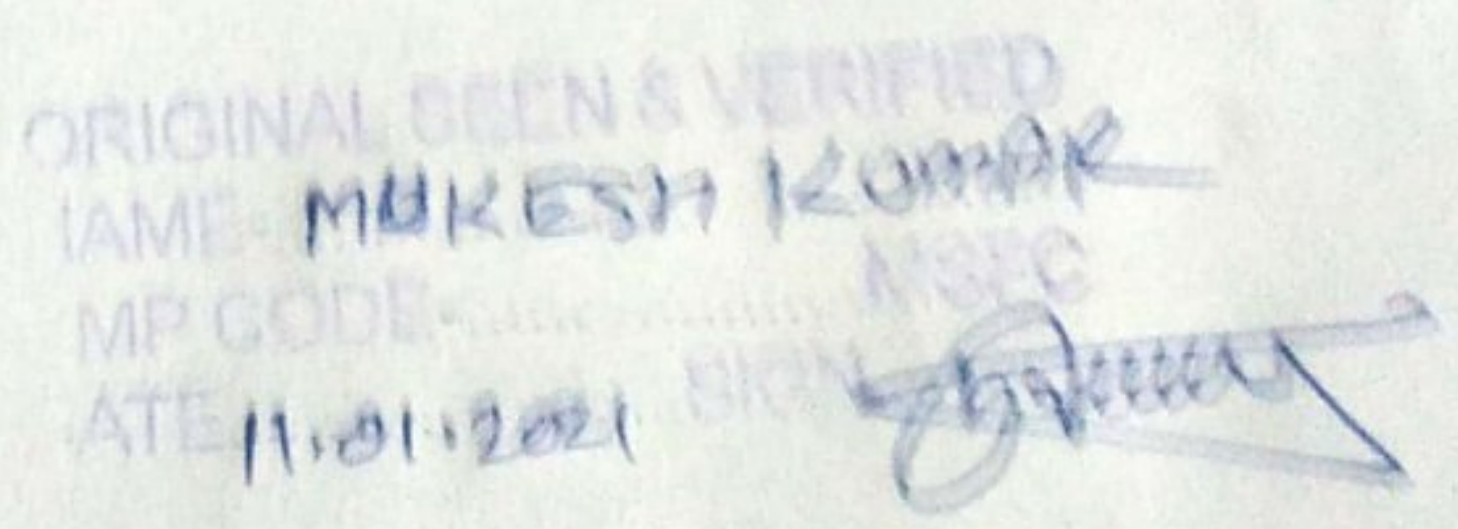 ORIGINAL SEEN & VERIFIED
IAME MUKESH KUMAR
MP CODE
ATE 11.01.2021 SIGN